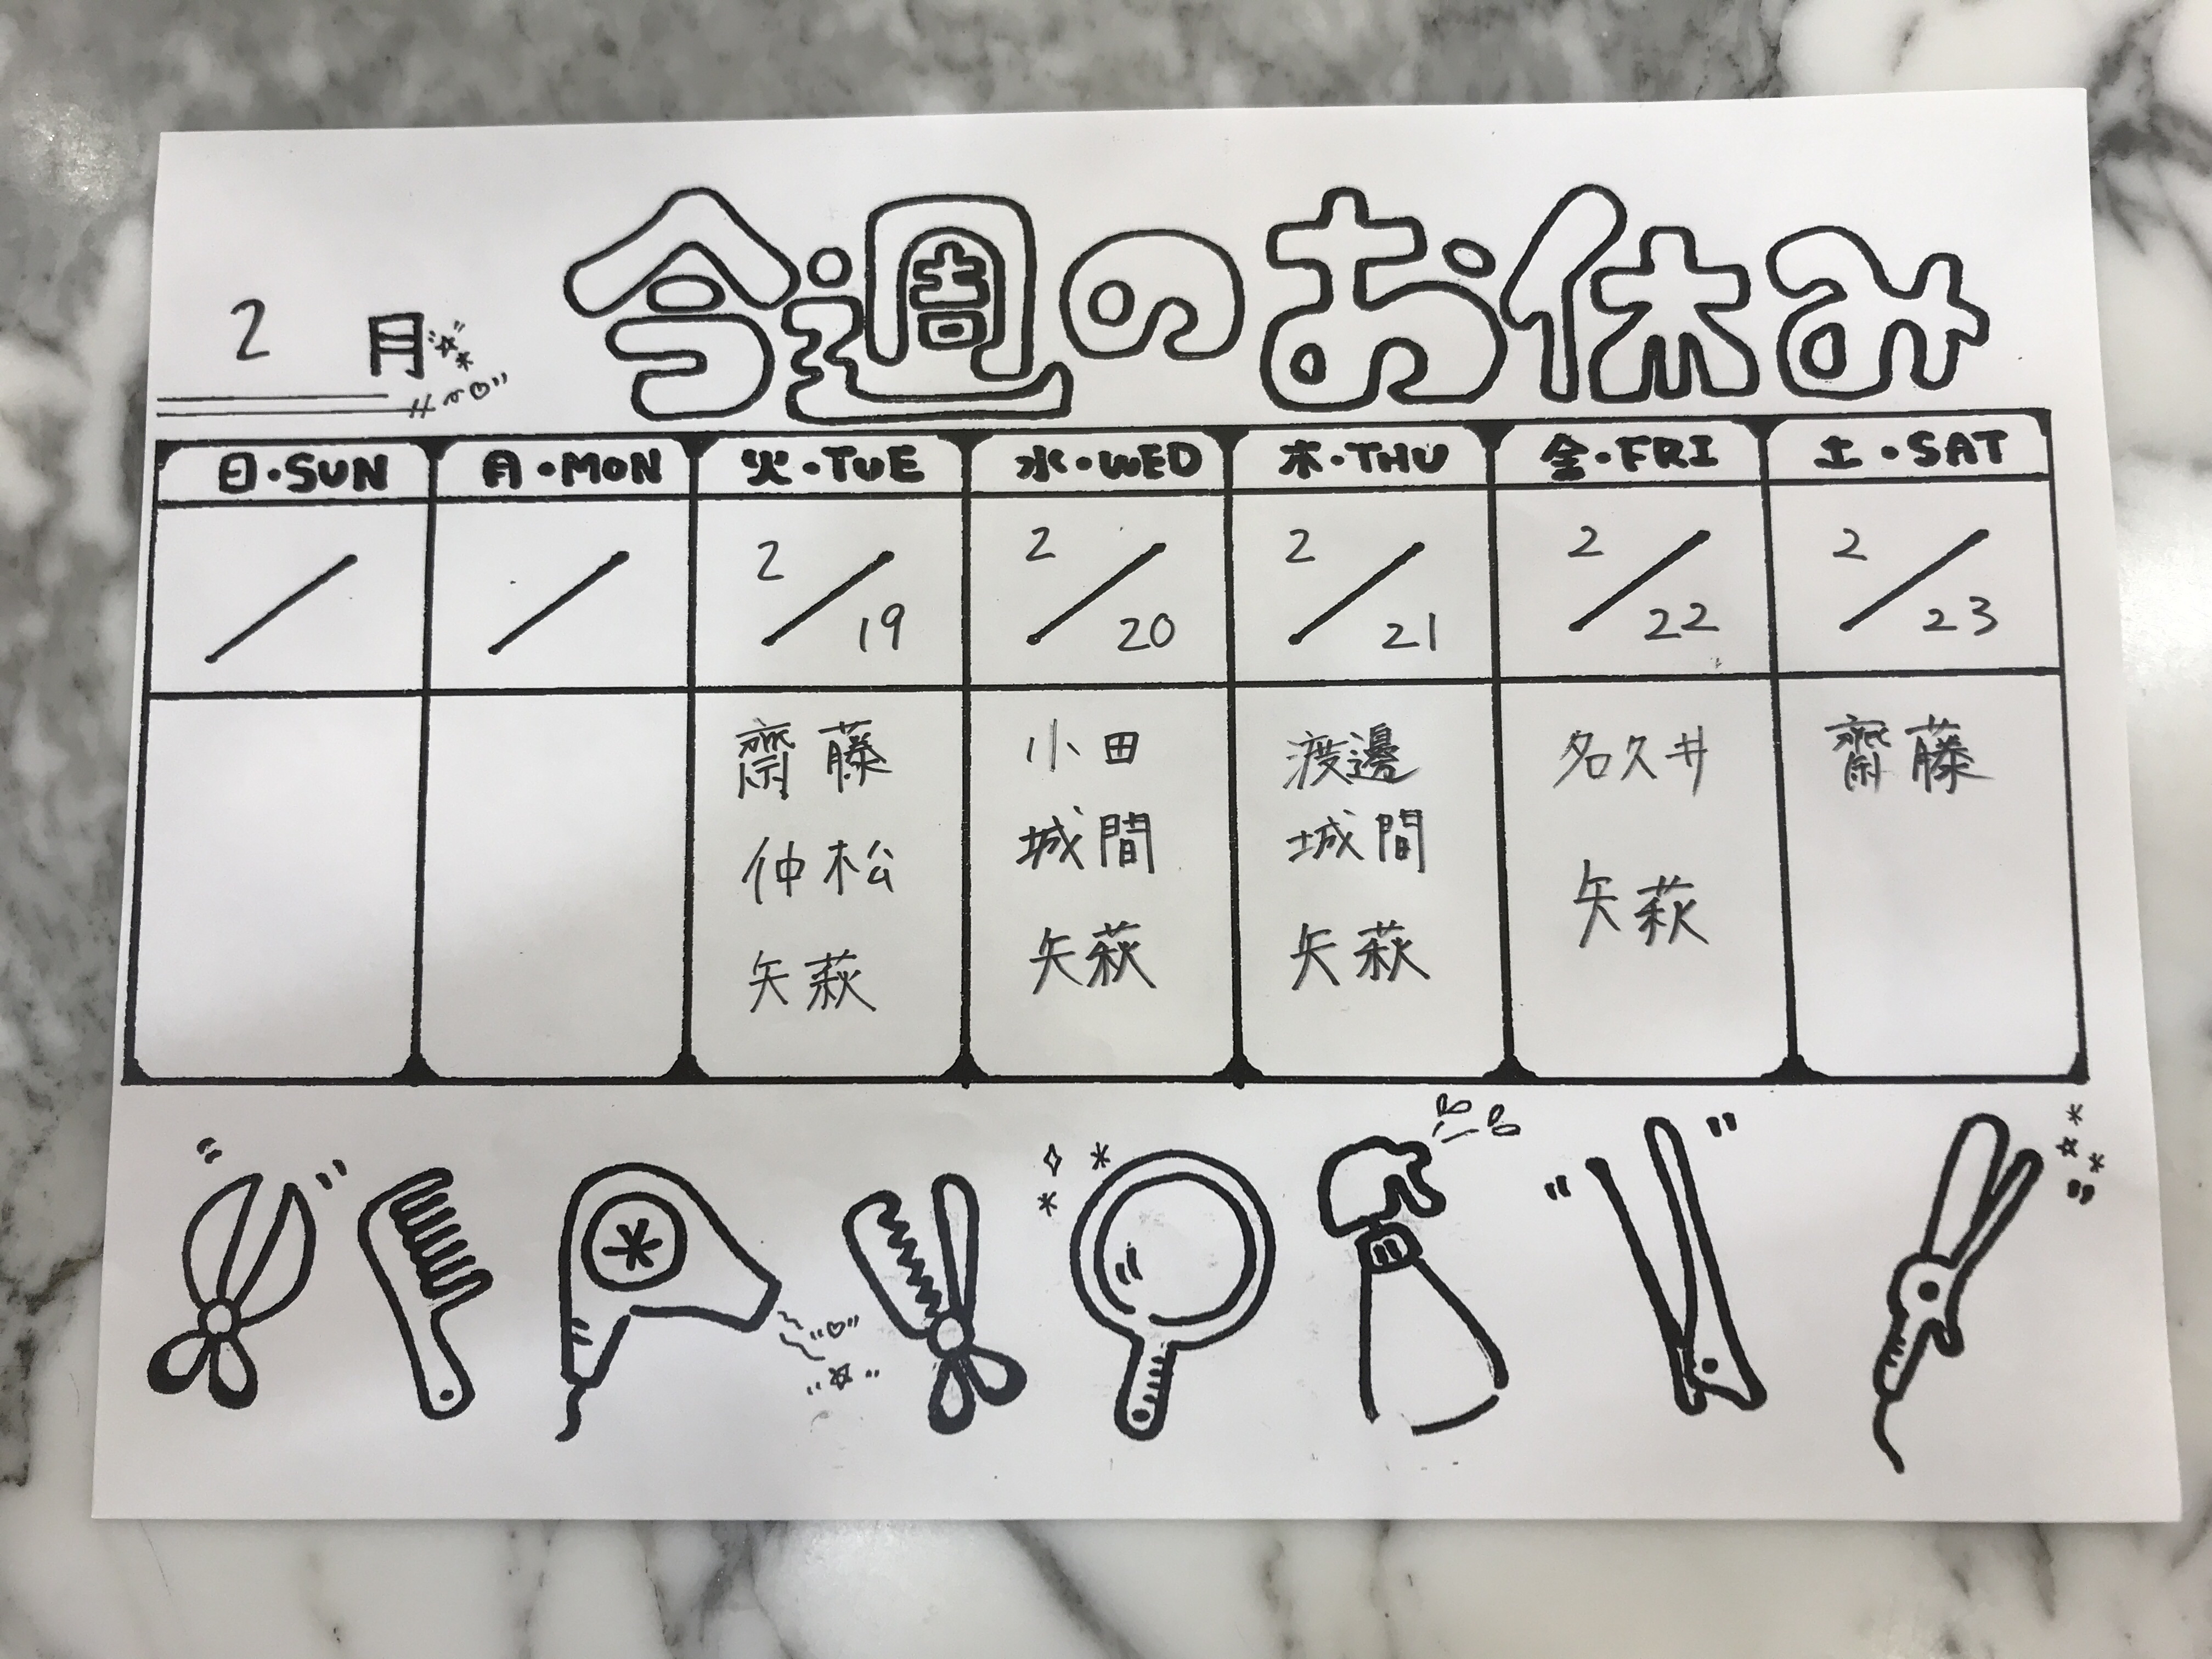 2月
今週のお休み
日・SUN 月・MON 火・TUE 水・WED 木・THU 金・FRI 土・SAT
/ / 2/19 2/20 2/21 2/22 2/23
齋藤 小田 渡邊 名久井 齋藤
仲松 城間 城間 矢萩
矢萩 矢萩 矢萩